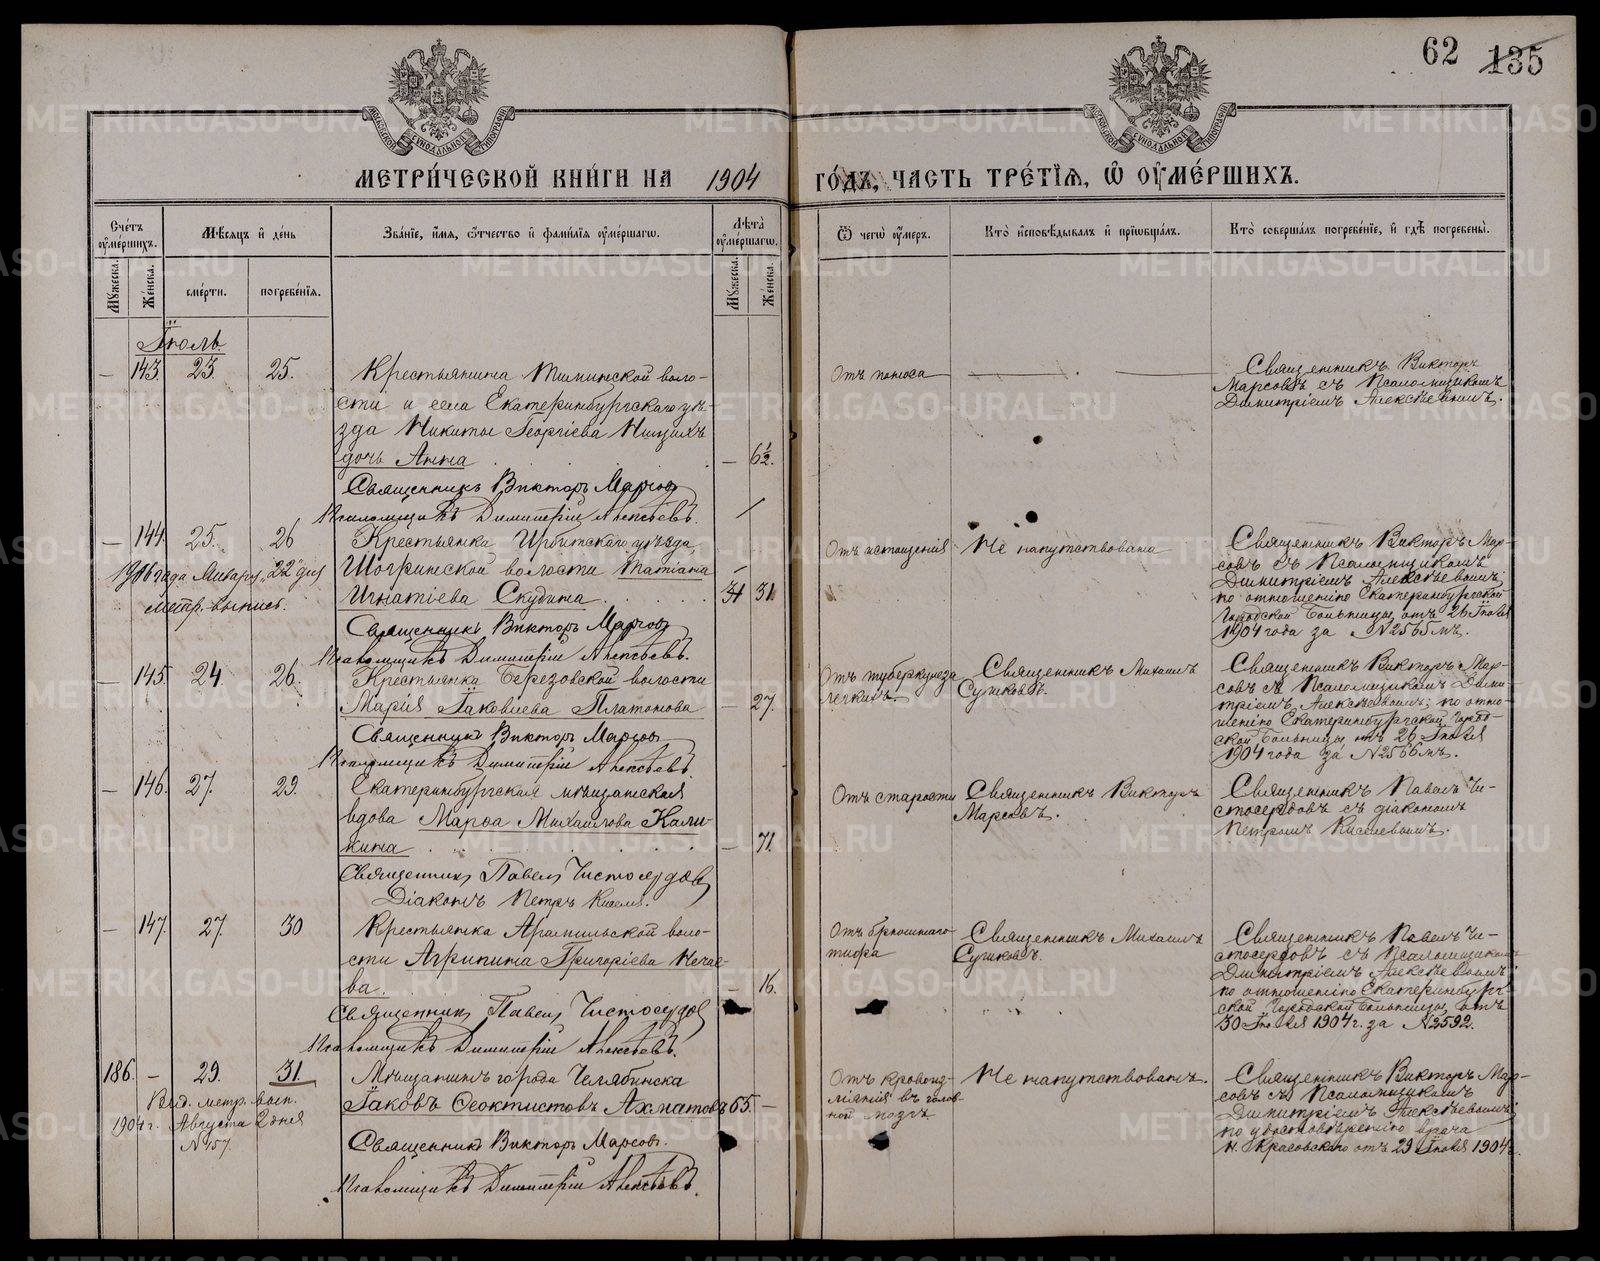 62 135
МОСКОВСКОЙ СѴНОДАЛЬНОЙ ТИПОГРАФІИ
МОСКОВСКОЙ СѴНОДАЛЬНОЙ ТИПОГРАФІИ
МЕТРИ́ЧЕСКОЙ КНИ́ГИ НА 1904 ГО́ДЪ, ЧАСТЬ ТРЕ́ТІЯ, Ѽ ОУМЕ́РШИХЪ.
Счетъ оумершихъ.
Мѣсяцъ и день
Званіе, имя, отчество и фамилія оумершаго.
Лѣта оумершаго.
Ѿ чего оумеръ.
Кто исповѣдывалъ и пріобщалъ.
Кто совершалъ погребеніе, и гдѣ погребены.
Мужеска.
Женска.
смерти.
погребенія.
Мужеска.
Женска.
Іюль.
— 143. 23. 25.
Крестьянина Тиминской воло-
сти и села Екатеринбургскаго уѣ-
зда Никиты Георгіева Нищихъ
дочь Анна — 6½.
Священникъ Викторъ Марсовъ
Псаломщикъ Димитрій Алексѣевъ.
Отъ поноса
Священникъ Викторъ
Марсовъ съ Псаломщикомъ
Димитріемъ Алексѣевымъ.
— 144. 25. 26
1906 года Января „22“ дня
метр. выпись.
Крестьянка Ирбитскаго уѣзда,
Шогринской волости Татіана
Игнатіева Скудина 31 31
Священникъ Викторъ Марсовъ
Псаломщикъ Димитрій Алексѣевъ.
Отъ истощенія
Не напутствована
Священникъ Викторъ Мар-
совъ съ Псаломщикомъ
Димитріемъ Алексѣевымъ;
по отношенію Екатеринбургской
Городской Больницы, отъ 26 Іюля
1904 года за №2565мъ.
— 145. 24 26.
Крестьянка Березовской волости
Марія Іаковлева Платонова — 27.
Священникъ Викторъ Марсовъ
Псаломщикъ Димитрій Алексѣевъ.
Отъ туберкулеза
легкихъ.
Священникъ Михаилъ
Сушковъ.
Священникъ Викторъ Мар-
совъ съ Псаломщикомъ Дими-
тріемъ Алексѣевымъ; по отно-
шенію Екатеринбургской Горо-
ской Больницы отъ 26 Іюля
1904 года за №2566мъ.
— 146. 27. 29.
Екатеринбургская мѣщанская
вдова Марѳа Михаилова Кали-
кина — 71.
Священникъ Павелъ Чистосердовъ
Діаконъ Петръ Киселевъ.
Отъ старости
Священникъ Викторъ
Марсовъ.
Священникъ Павелъ Чи-
стосердовъ съ діакономъ
Петромъ Киселевымъ.
— 147. 27. 30
Крестьянка Арамильской воло-
сти Агрипина Григоріева Нечае-
ва. — 16.
Священникъ Павелъ Чистосердовъ
Псаломщикъ Димитрій Алексѣевъ.
Отъ брюшнаго
тифа
Священникъ Михаилъ
Сушковъ.
Священникъ Павелъ Чи-
стосердовъ съ Псаломщикомъ
Димитріемъ Алексѣевымъ
по отношенію Екатеринбург
ской Городской Больницы, отъ
30 Іюля 1904 г. за №2592.
186. — 29. 31.
Выд. метр. вып.
1904 г. Августа 2 дня
№157.
Мѣщанинъ города Челябинска
Іаковъ Ѳеоктистовъ Ахматовъ 65. —
Священникъ Викторъ Марсовъ.
Псаломщикъ Димитрій Алексѣевъ.
Отъ кровоиз-
ліянія въ голов-
ной мозгъ
Не напутствованъ.
Священникъ Викторъ Мар-
совъ съ Псаломщикомъ
Димитріемъ Алексѣевымъ
по удостовѣренію врача
Н. Красовскаго отъ 29 Іюля 1904 г.